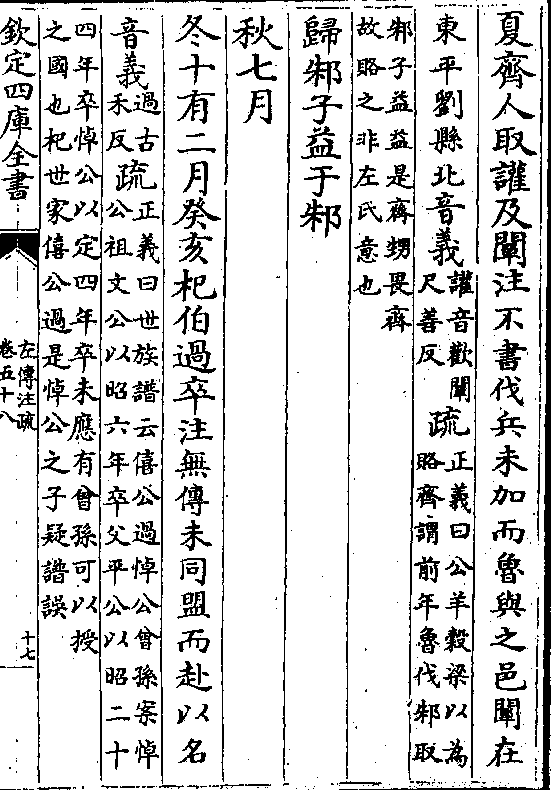 夏齊人取讙及闡注不書伐兵未加而魯與之邑闡在
東平劉縣北音義讙音歡闡
尺善反疏正義曰公羊穀梁以為
賂齊謂前年魯伐邾取
邾子益益是齊甥畏齊
故賂之非左氏意也
歸邾子益于邾
秋七月
冬十有二月癸亥杞伯過卒注無傳未同盟而赴以名
音義過古
禾反疏正義曰世族譜云僖公過悼公曾孫案悼
公祖文公以昭六年卒父平公以昭二十
四年卒悼公以定四年卒未應有曾孫可以授
之國也杞世家僖公過是悼公之子疑譜誤
欽定四庫全書
左傳注疏
卷五十八
十七